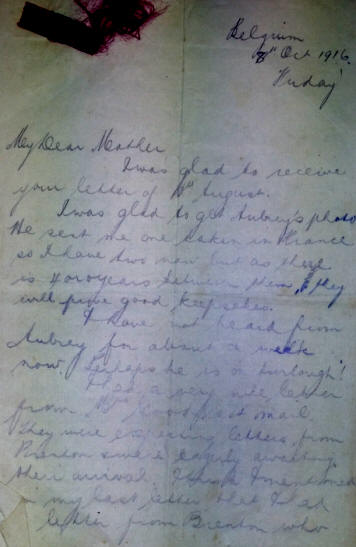 Belgium
8th Oct 1916.
Friday
My Dear Mother
I was glad to receive
your letter of August.
I was glad to get Aubrey's photo
He sent me one taken in France
so I have two now but as there
is 4 or 5 years between them, they
will prove good keepsakes.
I have not heard from
Aubrey for about a week
now. Perhaps he is on furlough!
I had a very nice letter
from last mail.
They were expecting letters from
Brenton &were eagerly awaiting
their arrival. I think I mentioned
in my last letter that I had
letter from Brenton who